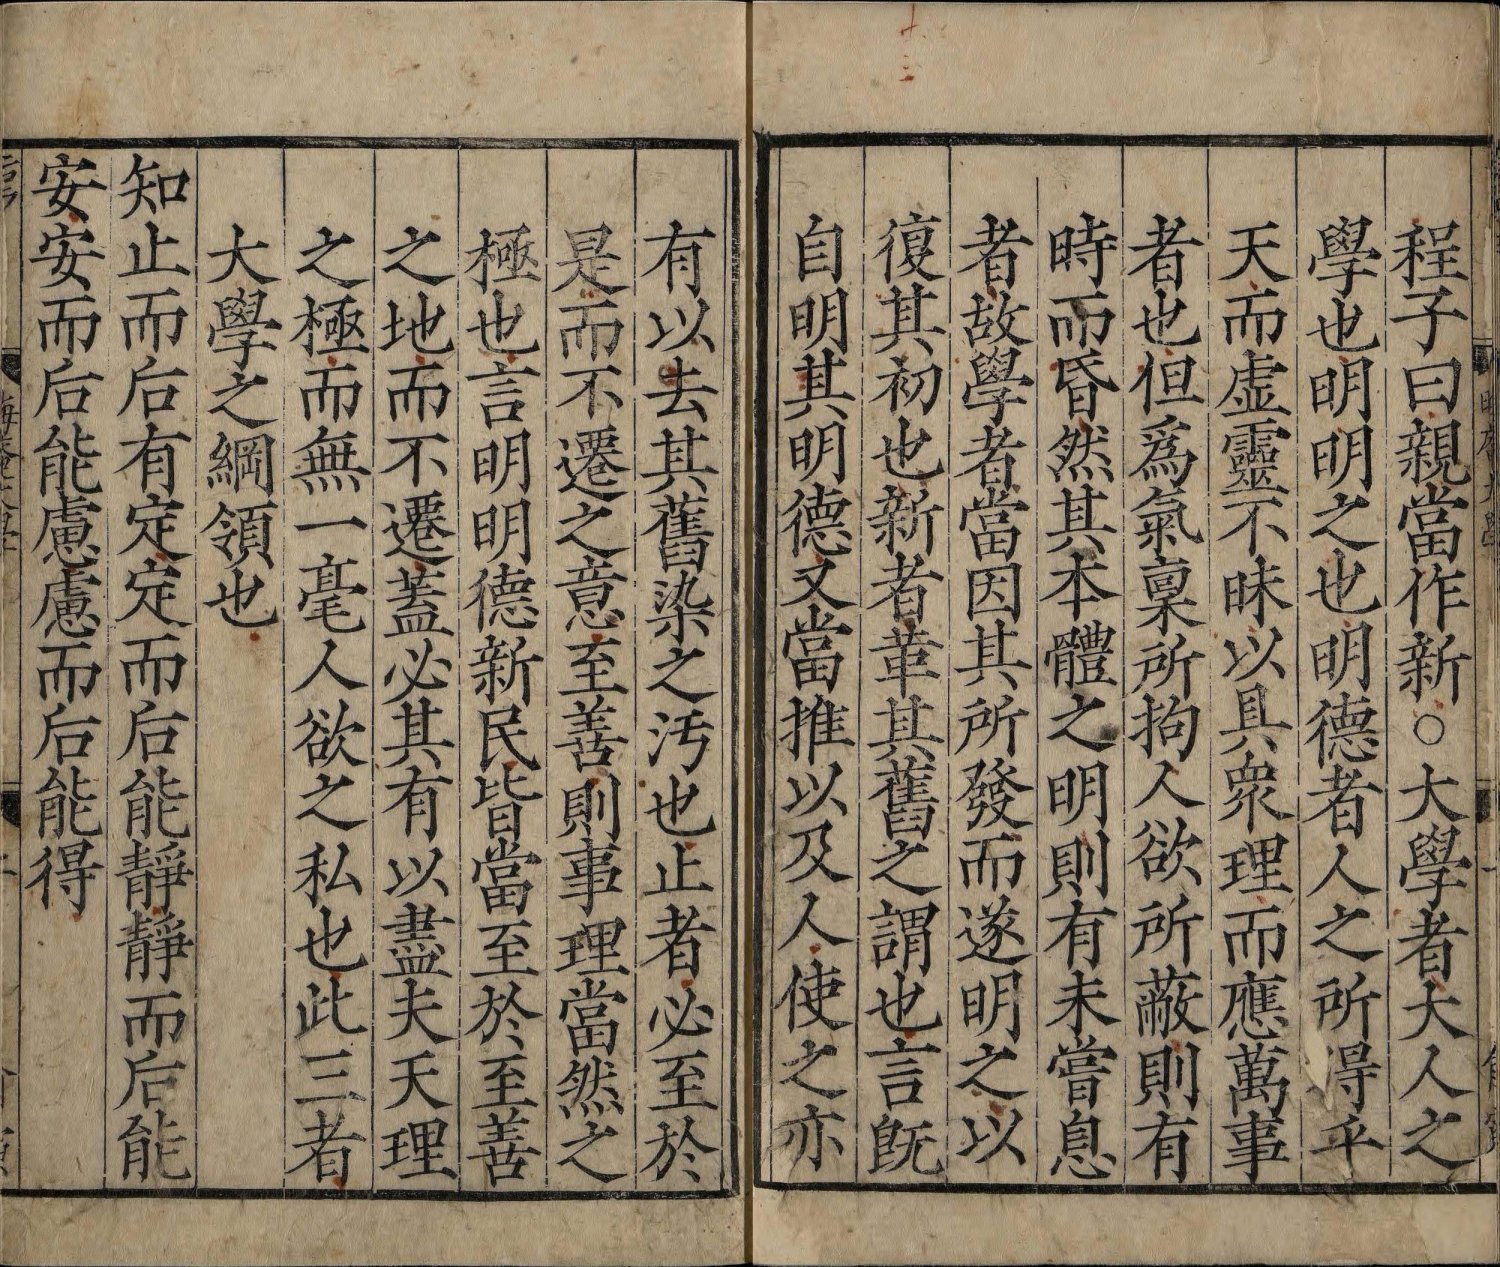 程子曰親當作新○大學者大人之
學也明明之也明德者人之所得乎
天而虛靈不昧以具衆理而應萬事
者也但爲氣稟所拘人欲所蔽則有
時而昏然其本體之明則有未嘗息
者故學者當因其所發而遂明之以
復其初也新者革其舊之謂也言旣
自明其明德又當推以及人使之亦
有以去其舊染之汚也止者必至於
是而不遷之意至善則事理當然之
極也言明明德新民皆當至於至善
之地而不遷蓋必其有以盡夫天理
之極而無一毫人欲之私也此三者
大學之綱領也
知止而后有定定而后能靜靜而后能
安安而后能慮慮而后能得